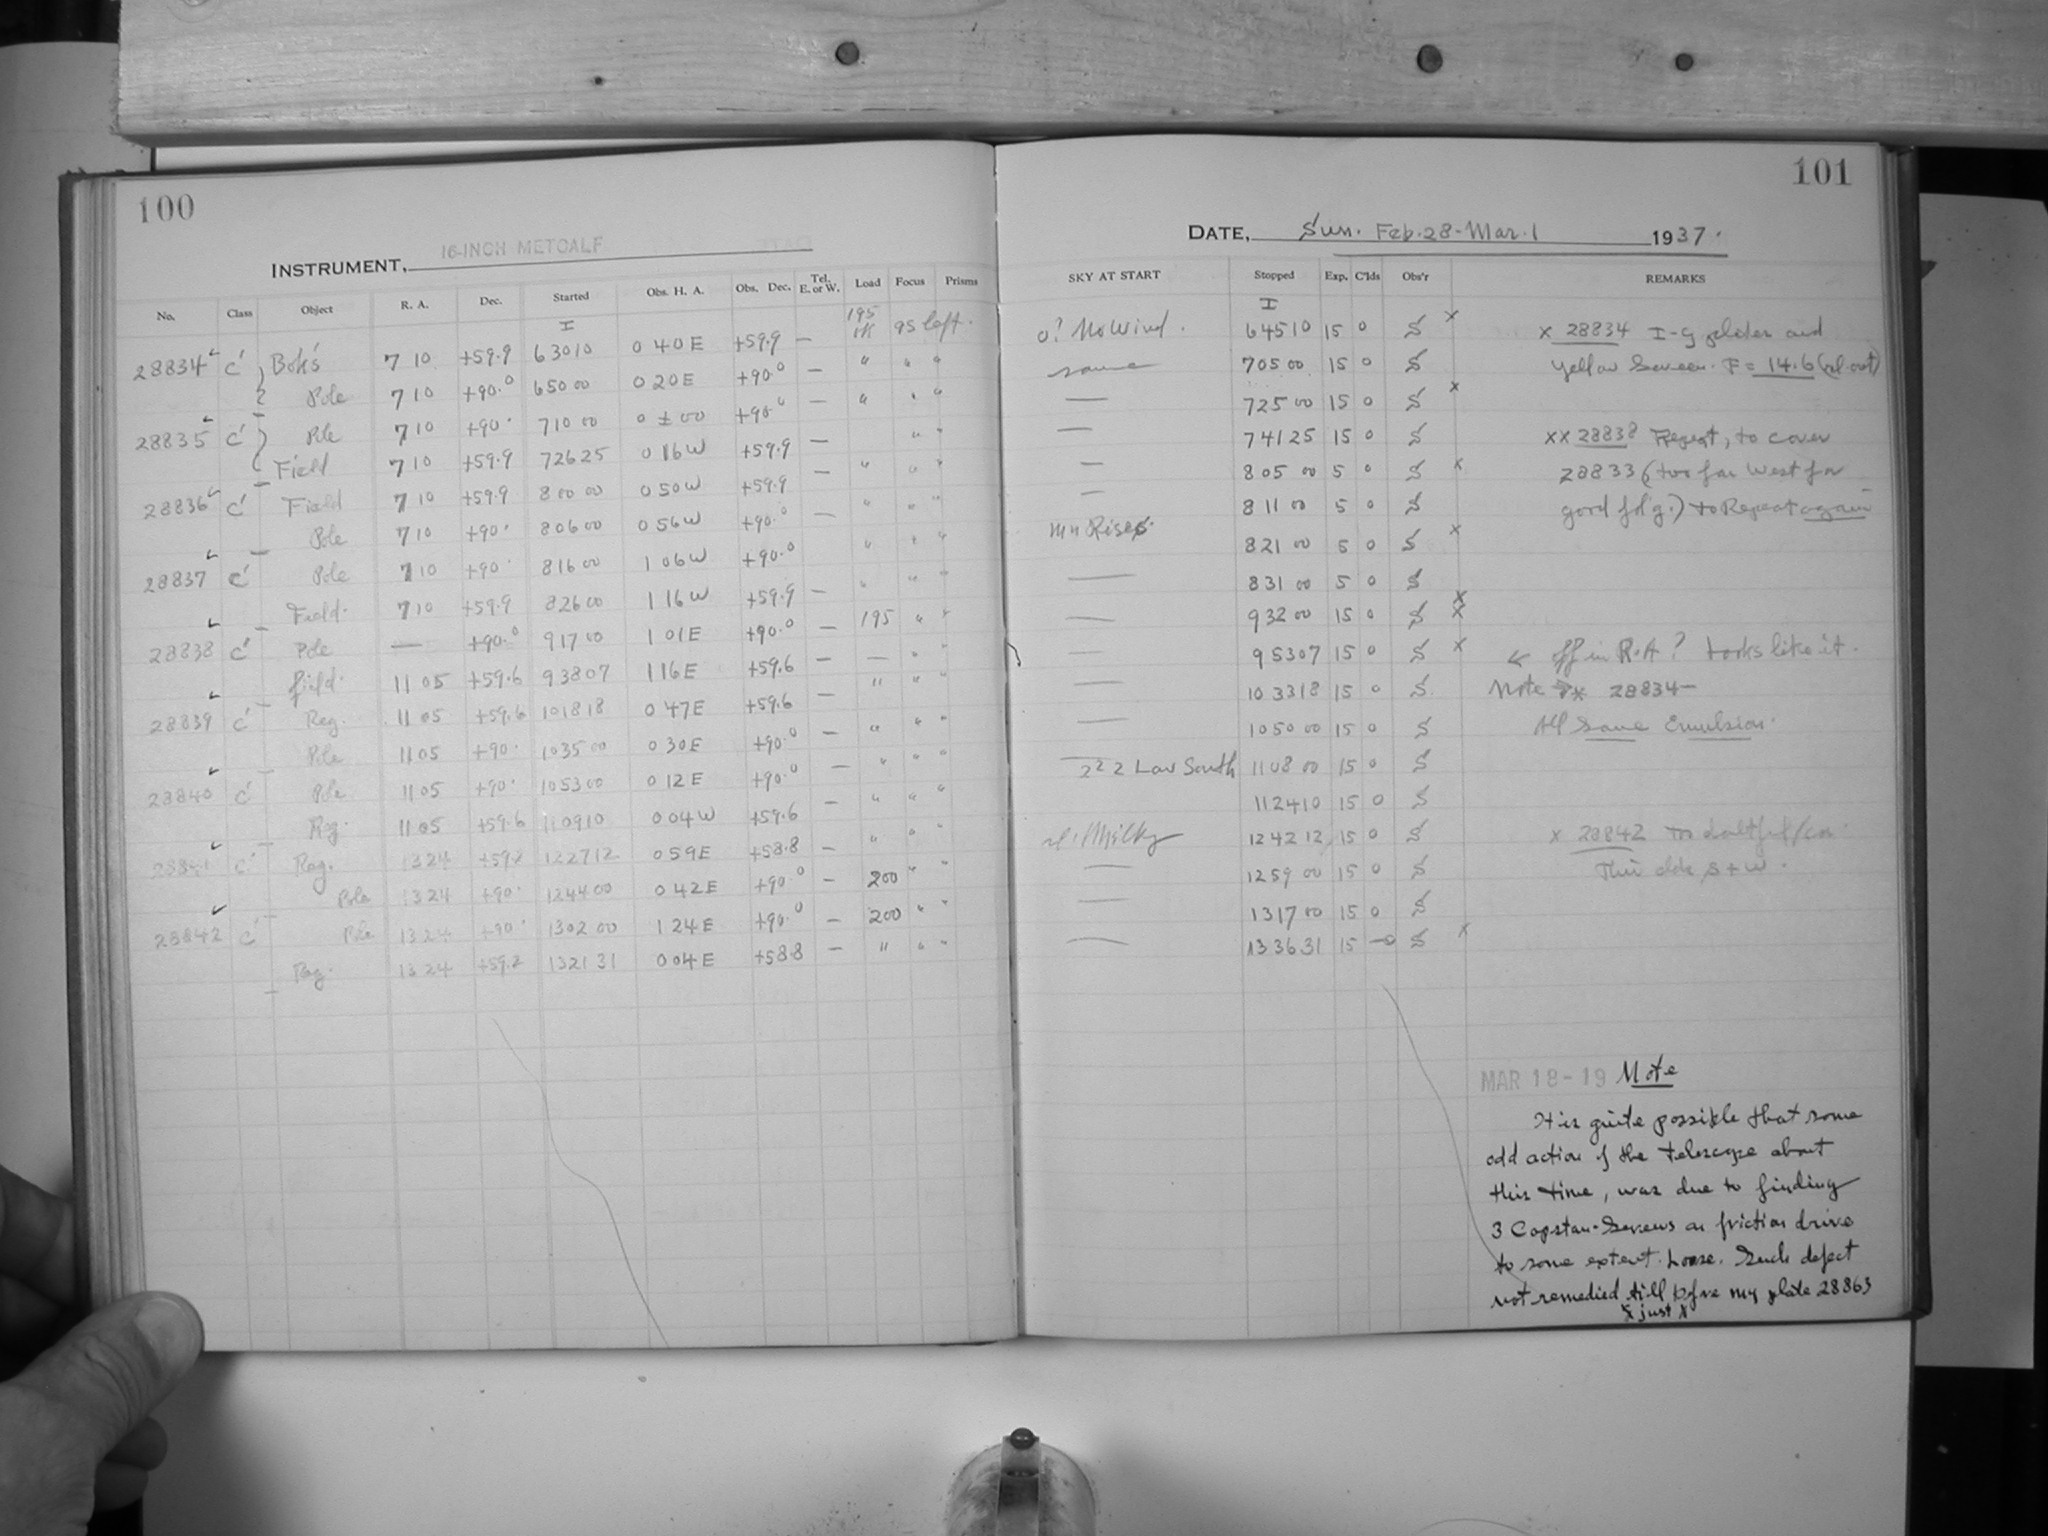 100
INSTRUMENT, 16-INCH METCALF
No. Class Object R. A. Dec. Started Obs. H. A. Obs. Dec. Tel. E. or W. Load Focus Prisms
I 195 95 left.
28834 C' Bok's 7 10 +59.9 6 30 10 0 40 E +59.9 —
Pole 7 10 +90.0 6 50 00 0 20 E +90.0 — " " "
28835 C' Pole 7 10 +90. 7 10 00 0 ± 00 +90.0 — " " "
Field 7 10 +59.9 7 26 25 0 16 W +59.9 — " "
28836 C' Field 7 10 +59.9 8 00 00 0 50 W +59.9 — " " "
Pole 7 10 +90. 8 06 00 0 56 W +90.0 — " " "
28837 C' Pole 7 10 +90. 8 16 00 1 06 W +90.0 " " "
Field. 7 10 +59.9 8 26 00 1 16 W +59.9 — " " "
28838 C' Pole — +90.0 9 17 00 1 01 E +90.0 — 195 " "
field. 11 05 +59.6 9 38 07 1 16 E +59.6 — — " "
28839 C' Reg. 11 05 +59.6 10 18 18 0 47 E +59.6 — " " "
Pole 11 05 +90. 10 35 00 0 30 E +90.0 — " " "
28840 C' Pole 11 05 +90. 10 53 00 0 12 E +90.0 — " " "
Reg. 11 05 +59.6 11 09 10 0 04 W +59.6 — " " "
28841 C' Reg. 13 24 +59.2 12 27 12 0 59 E +58.8 — " " "
Pole 13 24 +90. 12 44 00 0 42 E +90.0 — 200 " "
28842 C' Pole 13 24 +90. 13 02 00 1 24 E +90.0 — 200 " "
Reg. 13 24 +59.2 13 21 31 0 04 E +58.8 — " " "
101
DATE, Sun. Feb. 28 - Mar. 1 1937.
SKY AT START Stopped Exp. C'lds Obs'r REMARKS
I
0? No Wind. 6 45 10 15 0 S x x 28834 I-G plates and
same 7 05 00 15 0 S yellow Screen. F = 14.6 (rl. out)
— 7 25 00 15 0 S x
— 7 41 25 15 0 S xx 28838 Repeat, to cover
— 8 05 00 5 0 S x 28833 (too far West for
— 8 11 00 5 0 S good fd'g.) to Repeat again
Mn Rises. 8 21 00 5 0 S x
— 8 31 00 5 0 S
— 9 32 00 15 0 S x x
— 9 53 07 15 0 S x ← off in R.A? Looks like it.
— 10 33 18 15 0 S Note x 28834—
— 10 50 00 15 0 S All Same Emulsion.
2 2 2 Low South 11 08 00 15 0 S
11 24 10 15 0 S
sl. Milky 12 42 12 15 0 S x 28842
— 12 59 00 15 0 S Thin clds, S + W.
— 13 17 00 15 0 S
— 13 36 31 15 —0 S x
MAR 18-19 Note
It is quite possible that some
odd action of the telescope about
this time, was due to finding
3 Capstan-Screws on friction drive
to some extent loose. Such defect
not remedied till before my plate 28863
x just x